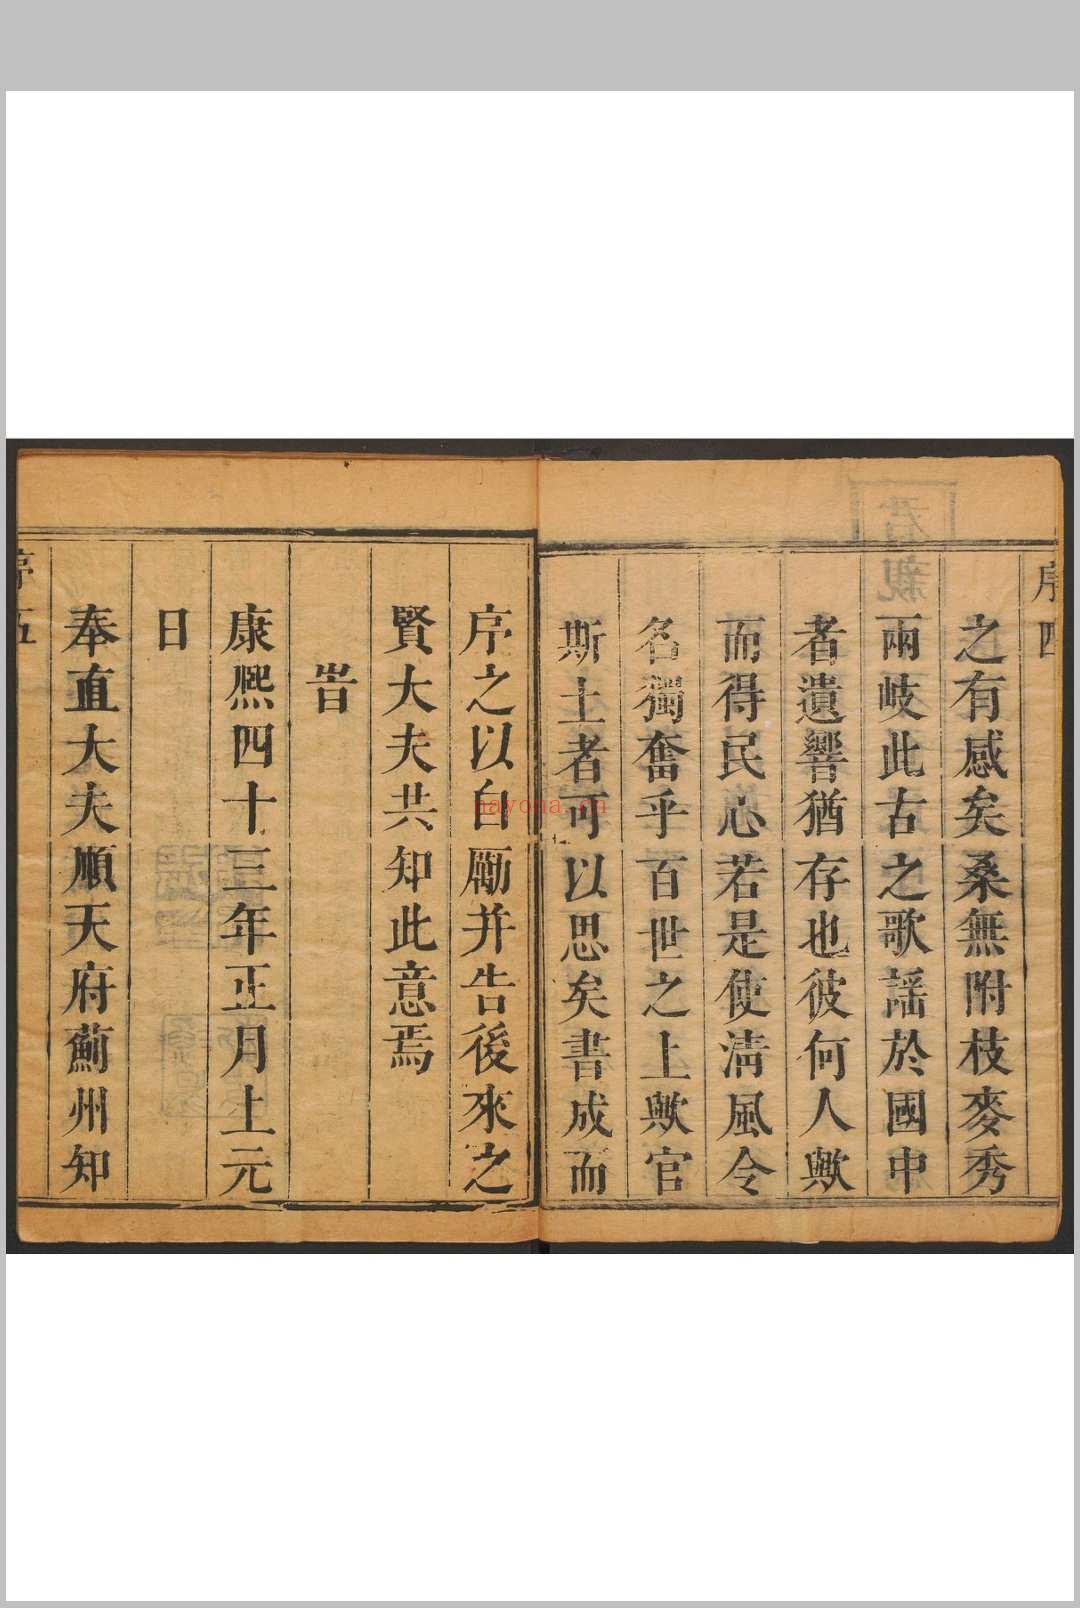 序 四
之有感矣桑無附枝麥秀
兩岐此古之歌謠於國中
者遺響猶存也彼何人歟
而得民心若是使清風令
名獨奮乎百世之上歟官
斯土者可以思矣書成而
序之以自勵并告後來之
賢大夫共知此意焉
旹
康熙四十三年正月上元
日
奉直大夫順天府薊州知
序 五
nayona.cn